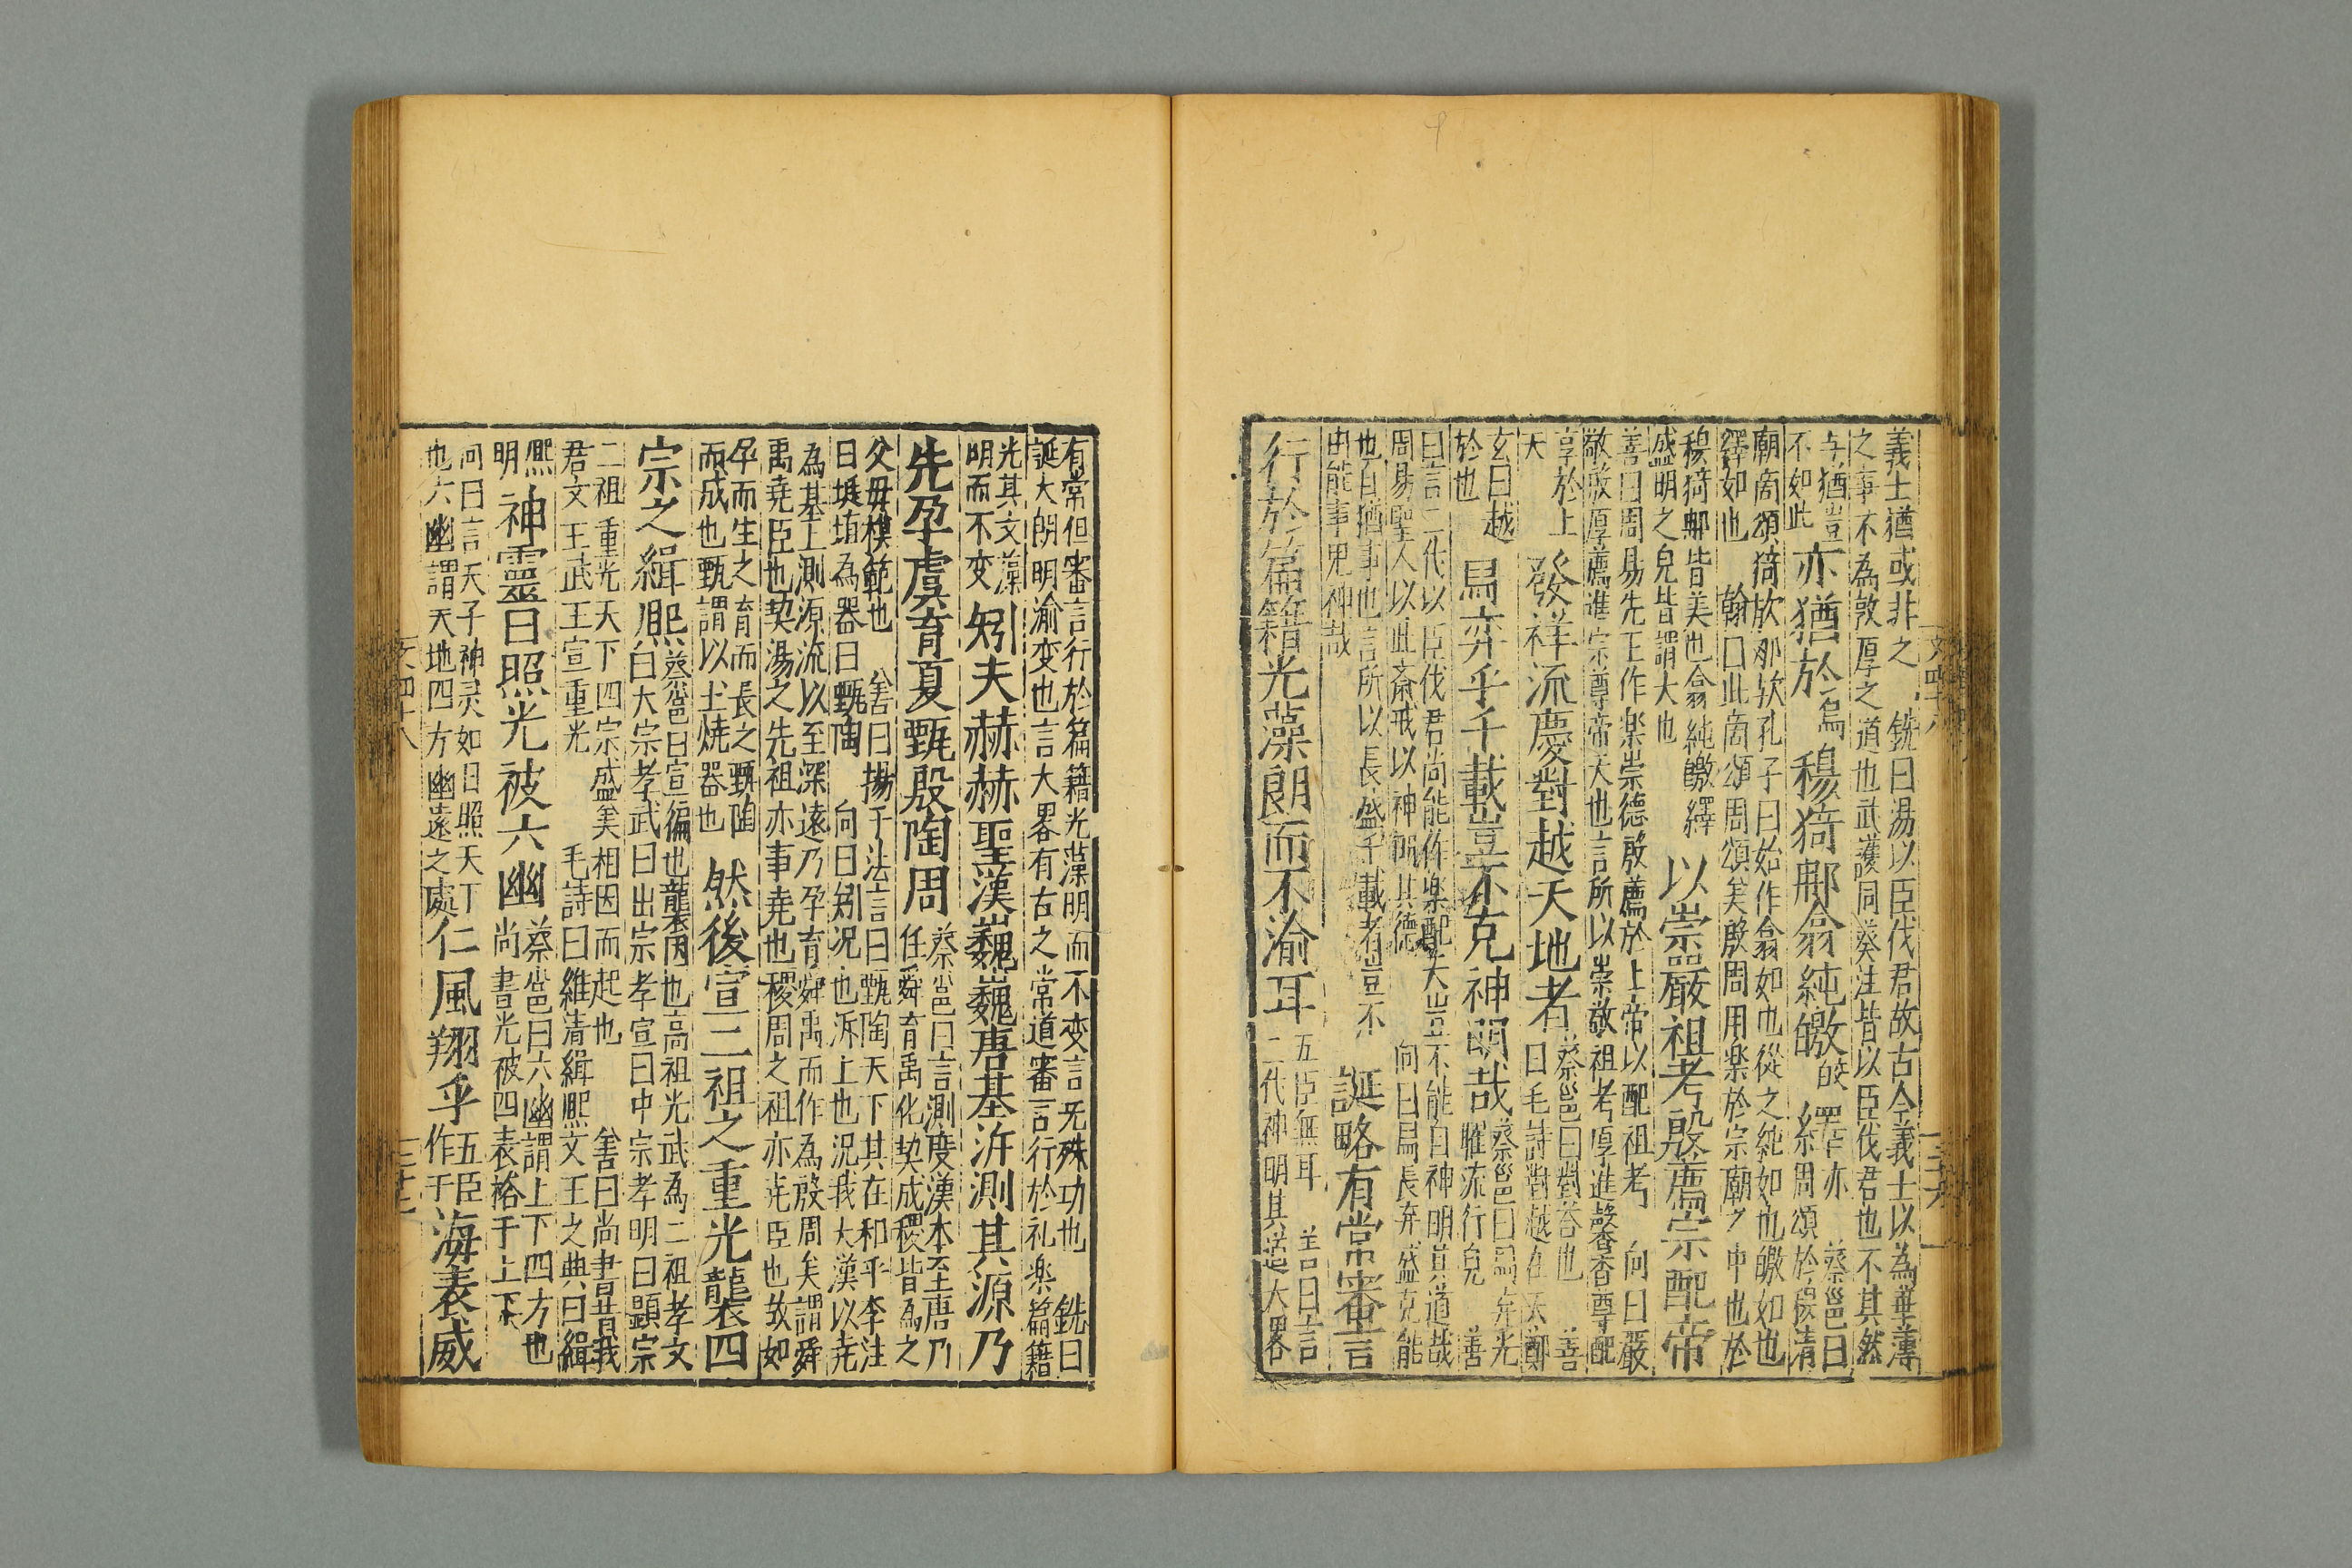 義士猶或非之　銑曰湯以臣伐君故古今義士以為華薄
之事不為敦厚之道也武護同蔡注皆以臣伐君也不其然
与猶豈
不如此
亦猶於
烏
穆猗那翕純皦
皎
繹
亦　蔡邕曰
周頌於穆清
廟商頌猗欤那欤孔子曰始作翕如也從之純如也皦如也
繹如也　翰曰此商頌周頌矣殷周用楽於宗廟之中也於
穆猗那皆美也翕純皦繹
盛明之皃皆謂大也
以崇嚴祖考殷薦宗配帝
善曰周易先王作楽崇德殷薦於上帝以配祖考　向曰嚴
敬殷厚薦進宗尊帝天也言所以崇敬祖考厚進馨香尊配
享於上
天
發祥流慶對越天地者
蔡邕曰對荅也　善
曰毛詩對越在天鄭
玄曰越
於也
舄弈乎千載豈不克神明哉
蔡邕曰舄弈光
曜流行皃　善
曰言二代以臣伐君尚能作楽配天豈不能自神明其道哉
周易聖人以此斎戒以神明其德　向曰舄長弈盛克能
也自猶事也言所以長盛千載者豈不
由能事鬼神哉
誕略有常審言
行於篇籍光藻朗而不渝耳
五臣無耳　善曰言
二代神明其道大畧
文四十八
三十六
有常但審言行於篇籍光藻明而不变言旡殊功也　銑曰
誕大朗明渝变也言大畧有古之常道審言行於礼楽篇籍
光其文藻
明而不变
矧夫赫赫聖漢巍巍唐基泝測其源乃
先孕虞育夏甄殷陶周
蔡邕曰言測度漢本至唐乃
任舜育禹化契成稷皆為之
父毋模範也　善曰揚子法言曰甄陶天下其在和乎李注
曰埏埴為器曰甄陶　向曰矧况也泝上也況我大漢以尭
為基上測源流以至深遠乃孕育舜禹而作為殷周矣謂舜
禹尭臣也契湯之先祖亦事尭也稷周之祖亦尭臣也故如
孕而生之育而長之甄陶
而成也甄謂以土焼器也
然後宣二祖之重光襲四
宗之緝熙
蔡邕曰宣徧也襲因也高祖光武為二祖孝文
曰大宗孝武曰出宗孝宣曰中宗孝明曰顕宗
二祖重光天下四宗盛美相因而起也　善曰尚書昔我
君文王武王宣重光　毛詩曰維清緝熙文王之典曰緝
熙
明
神靈日照光被六幽
蔡邕曰六幽謂上下四方也
尚書光被四表格于上下
向曰言天子神灵如日照天下
也六幽謂天地四方幽遠之處
仁風翔乎
五臣
作于
海表威
文四十八